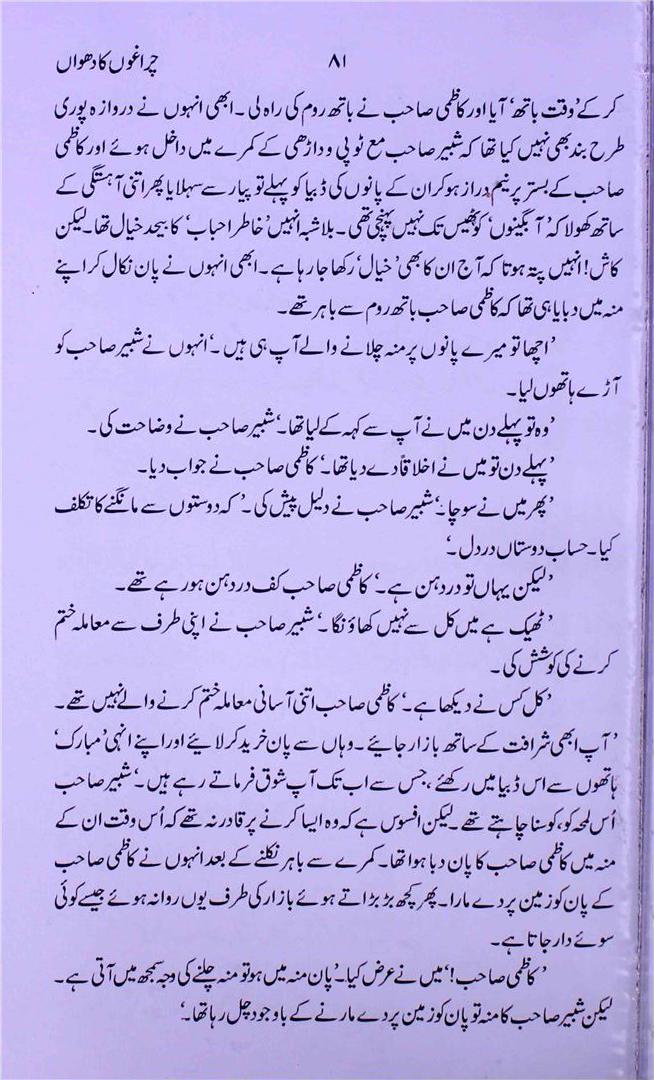 چراغوں کا دھواں ۸۱
کر کے ’وقت باتھ‘ آیا اور کاظمی صاحب نے باتھ روم کی راہ لی۔ ابھی انہوں نے دروازہ پوری
طرح بند بھی نہیں کیا تھا کہ شبیر صاحب مع ٹوپی و داڑھی کے کمرے میں داخل ہوئے اور کاظمی
صاحب کے بستر پر نیم دراز ہو کر ان کے پانوں کی ڈبیا کو پہلے تو پیار سے سہلایا پھر اتنی آہستگی کے
ساتھ کھولا کہ ’آبگینوں‘ کو ٹھیس تک نہیں پہنچی تھی۔ بلاشبہ انہیں ’خاطر احباب‘ کا بیحد خیال تھا۔ لیکن
کاش! انہیں پتہ ہوتا کہ آج ان کا بھی ’خیال‘ رکھا جا رہا ہے۔ ابھی انہوں نے پان نکال کر اپنے
منہ میں دبایا ہی تھا کہ کاظمی صاحب باتھ روم سے باہر تھے۔
’اچھا تو میرے پانوں پر منہ چلانے والے آپ ہی ہیں۔‘ انہوں نے شبیر صاحب کو
آڑے ہاتھوں لیا۔
’وہ تو پہلے دن میں نے آپ سے کہہ کے لیا تھا۔‘ شبیر صاحب نے وضاحت کی۔
’پہلے دن تو میں نے اخلاقاً دے دیا تھا۔‘ کاظمی صاحب نے جواب دیا۔
’پھر میں نے سوچا۔‘ شبیر صاحب نے دلیل پیش کی۔ ’کہ دوستوں سے مانگنے کا تکلف
کیا۔ حساب دوستاں در دل۔‘
’لیکن یہاں تو در دہن ہے۔‘ کاظمی صاحب کف در دہن ہو رہے تھے۔
’ٹھیک ہے میں کل سے نہیں کھاؤنگا۔‘ شبیر صاحب نے اپنی طرف سے معاملہ ختم
کرنے کی کوشش کی۔
’کل کس نے دیکھا ہے۔‘ کاظمی صاحب اتنی آسانی معاملہ ختم کرنے والے نہیں تھے۔
’آپ ابھی شرافت کے ساتھ بازار جائیے۔ وہاں سے پان خرید کر لایئے اور اپنے انہی ’مبارک‘
ہاتھوں سے اس ڈبیا میں رکھئے، جس سے اب تک آپ شوق فرماتے رہے ہیں۔‘ شبیر صاحب
اُس لمحہ کو، کوسنا چاہتے تھے۔ لیکن افسوس ہے کہ وہ ایسا کرنے پر قادر نہ تھے کہ اُس وقت ان کے
منہ میں کاظمی صاحب کا پان دبا ہوا تھا۔ کمرے سے باہر نکلنے کے بعد انہوں نے کاظمی صاحب
کے پان کو زمین پر دے مارا۔ پھر کچھ بڑبڑاتے ہوئے بازار کی طرف یوں روانہ ہوئے جیسے کوئی
سوئے دار جاتا ہے۔
’کاظمی صاحب!‘ میں نے عرض کیا۔ ’پان منہ میں ہو تو منہ چلنے کی وجہ سمجھ میں آتی ہے۔
لیکن شبیر صاحب کا منہ تو پان کو زمین پر دے مارنے کے باوجود چل رہا تھا۔‘